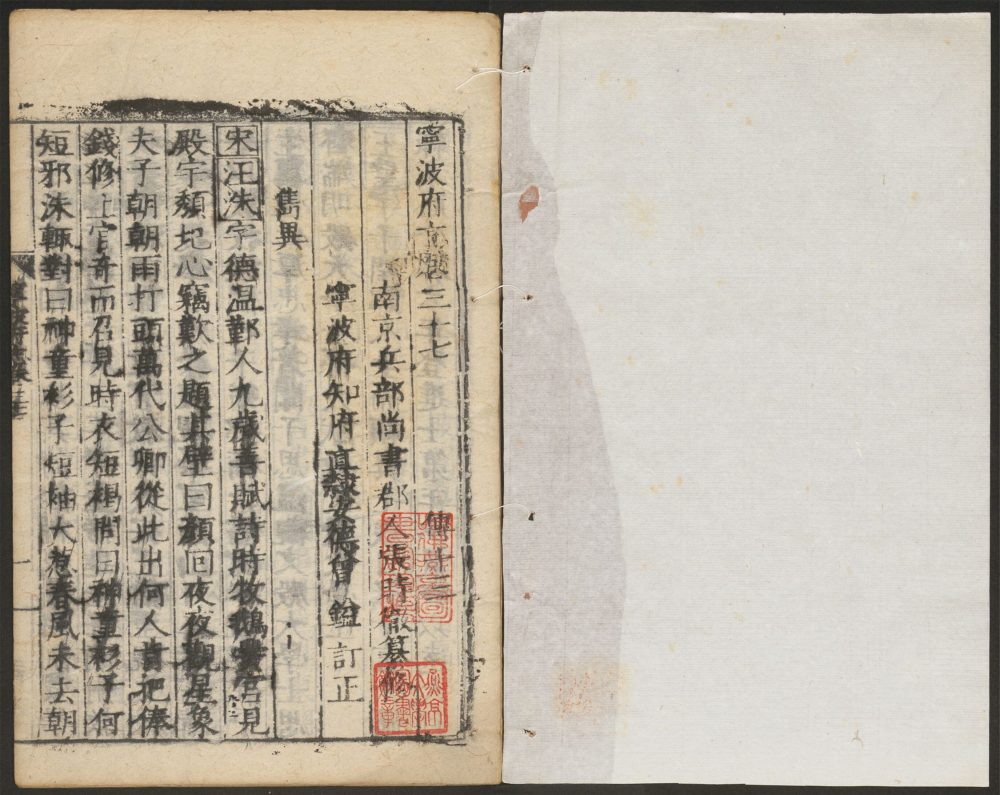 寧波府志卷三十七
傳十三
南京兵部尚書郡人張時徹纂修
寧波府知府直隸定德曾鎰訂正
雋異
宋汪洙字德温鄞人九歲善賦詩時牧鵝黌宮見
殿宇頹圮心竊歎之題其壁曰顏回夜夜觀星象
夫子朝朝雨打頭萬代公卿從此出何人肯把俸
錢修上官奇而召見時衣短褐問曰神童衫子何
短邪洙輒對曰神童衫子短袖大惹春風未去朝